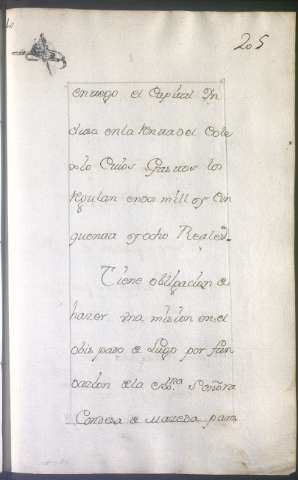 205
entrego el Capital In
clusa en la Renta del Cole
xio Cuios Gastos los
Regulan en dos mill y Cin
quenta y ocho Reales.
Tiene obligacion de
hazer una mision en el
obispado de Lugo por fun
dazion de la exma Señora
Condesa de Maceda para